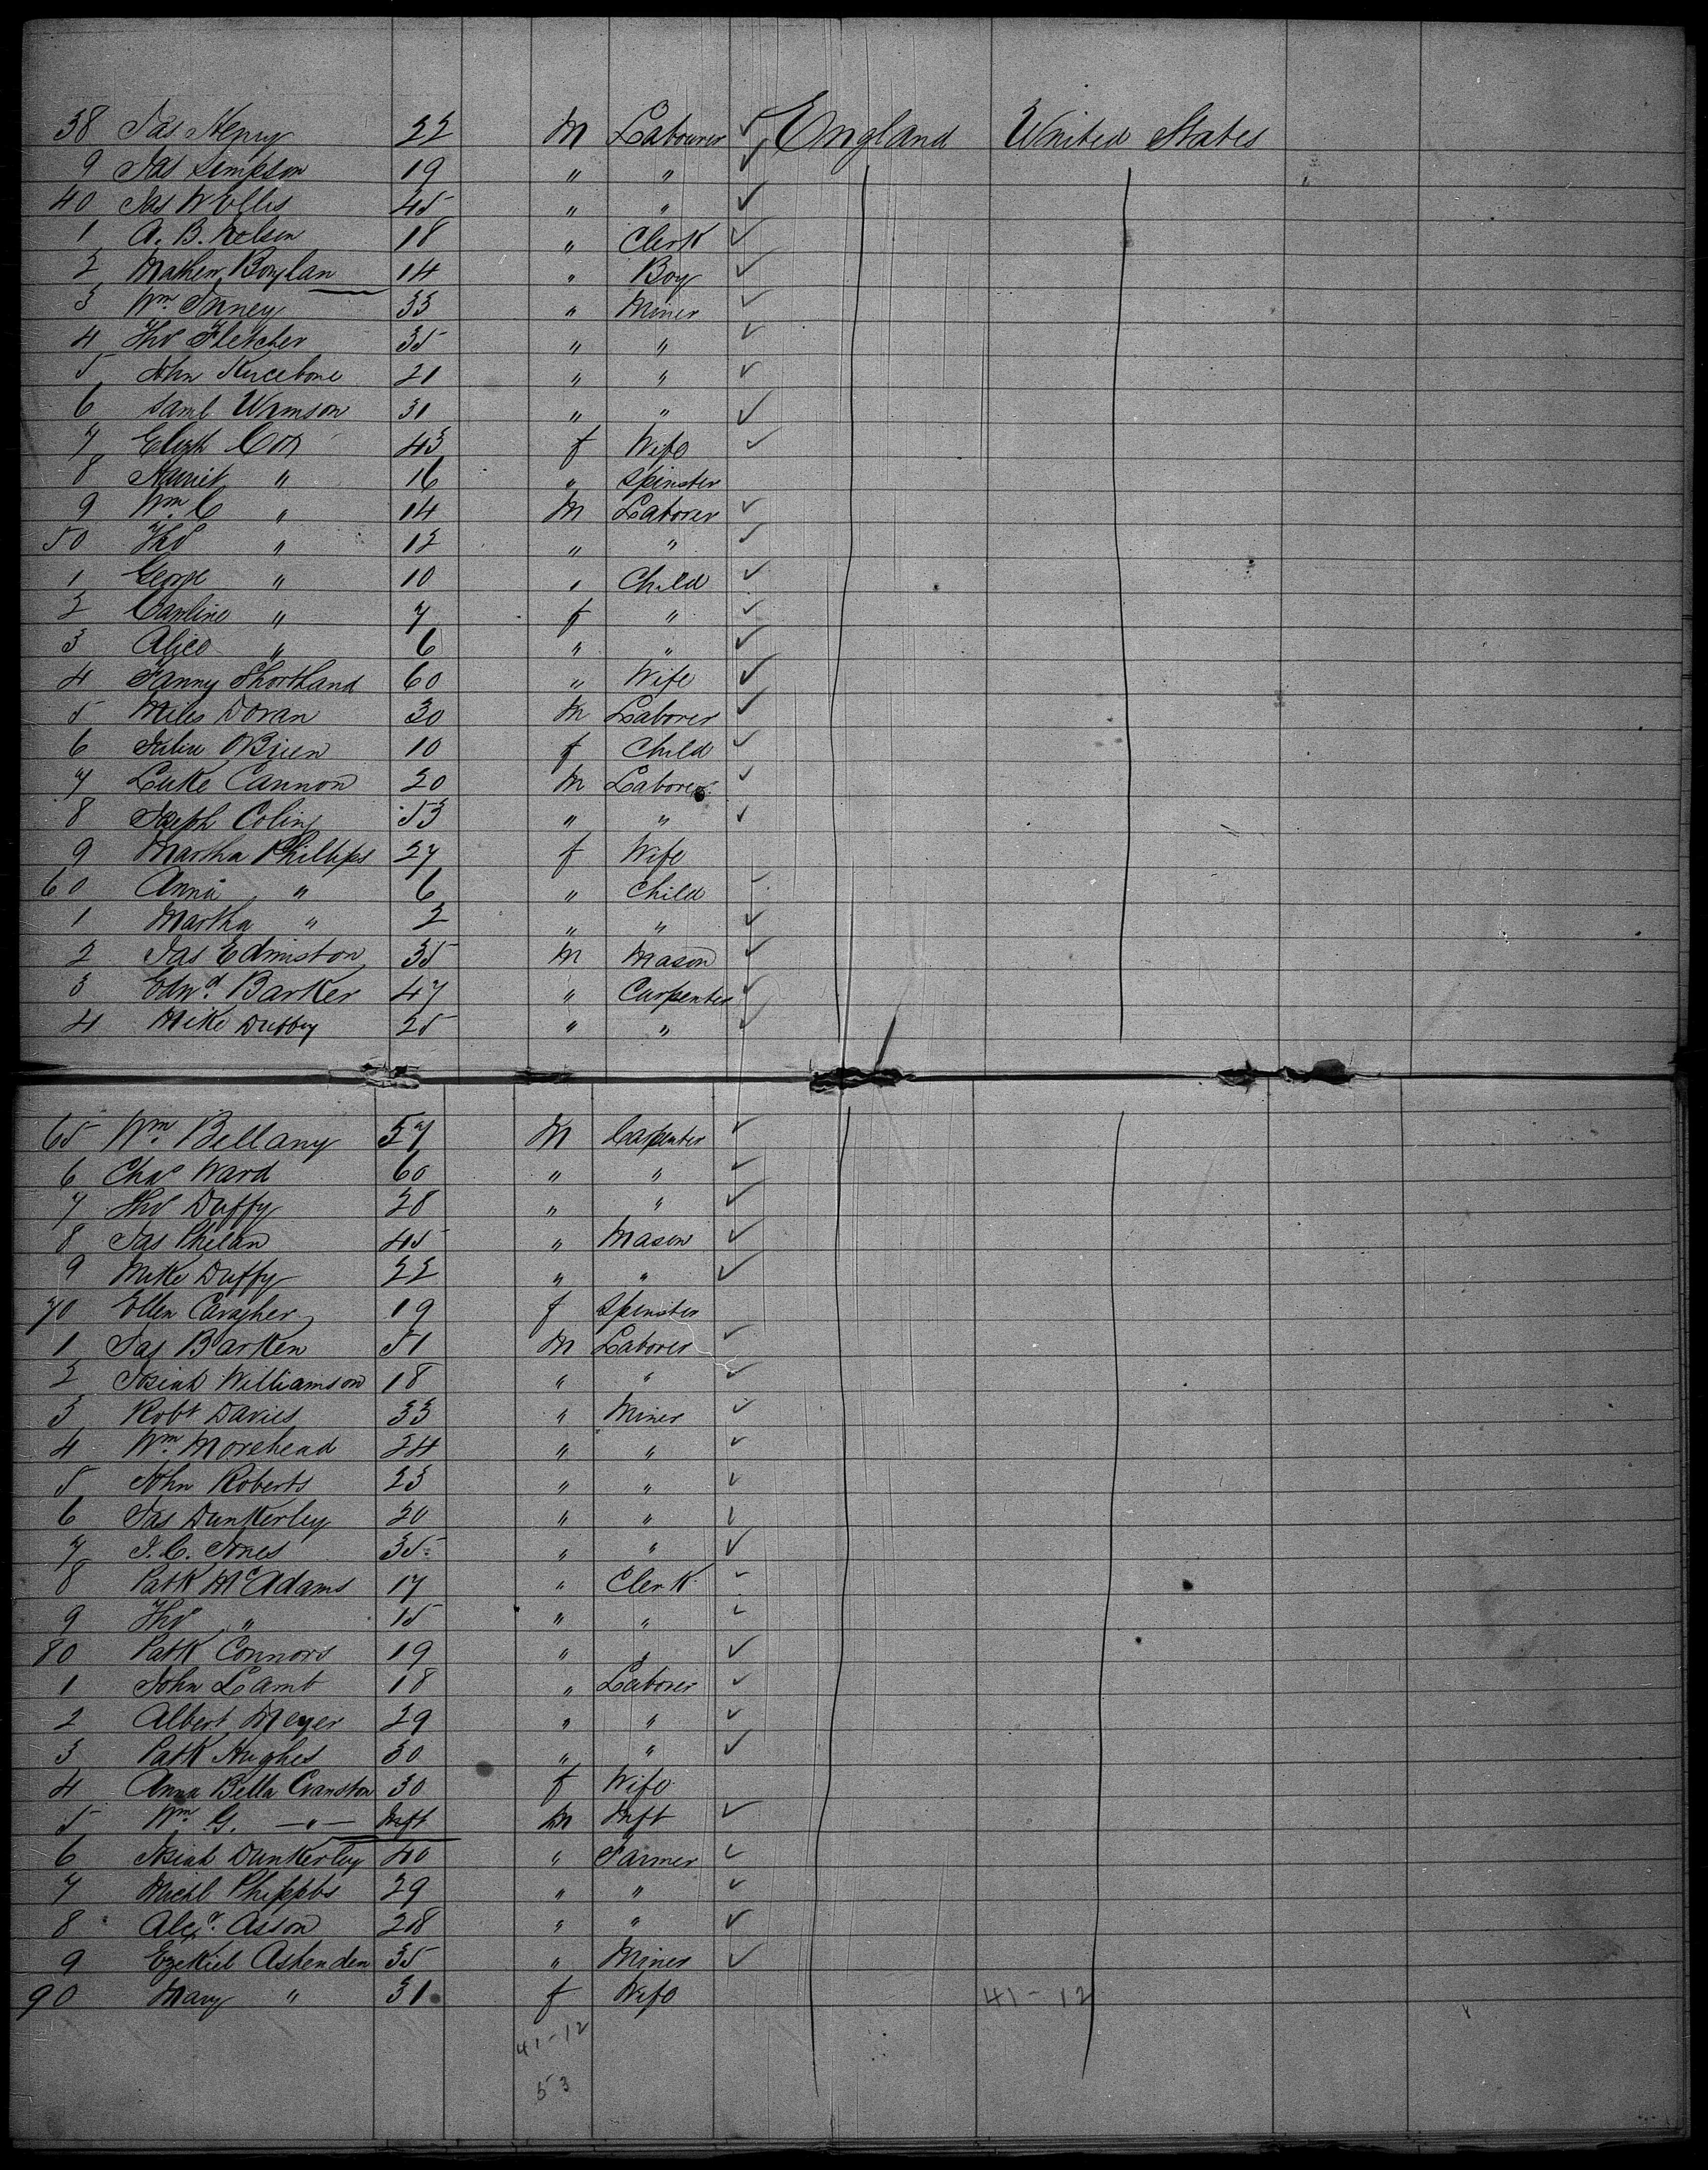 38 Jas Henry 22 M Labourer ✓ England United States
9 Jas Simpson 19 " " ✓
40 Jas Wollis 45 " " ✓
1 A. B. Nelson 18 " Clerk ✓
2 Mathew Boylan 14 " Boy ✓
3 Wm 33 " Miner ✓
4 Tho Fletcher 35 " " ✓
5 John 21 " " ✓
6 Saml 31 " " ✓
7 Elizth Cox 43 f Wife ✓
8 Harriet " 16 " Spinster
9 Wm C " 14 M Laborer ✓
50 Tho " 12 " " ✓
1 George " 10 " Child ✓
2 Caroline " 7 f " ✓
3 Alice " 6 " " ✓
4 Fanny Shortland 60 " Wife ✓
5 Miles Doran 30 M Laborer ✓
6 Julia OBrien 10 f Child ✓
7 Luke Cannon 20 M Laborer ✓
8 Joseph Colin 53 " " ✓
9 Martha Phillips 27 f Wife
60 Anna " 6 " Child
1 Martha " 2 " " ✓
2 Jas Edmiston 35 M Mason ✓
3 Edwd. Barker 47 " Carpenter ✓
4 Mike Duffy 25 " " ✓
65 Wm. Bellany 57 M Carpenter ✓
6 Chas Ward 60 " " ✓
7 Tho Duffy 28 " " ✓
8 Jas Phelan 45 " Mason ✓
9 Mike Duffy 22 " " ✓
70 Ellen Caragher 19 f Spinster
1 Jas Barken 51 M Laborer ✓
2 Josiah Williamson 18 " " ✓
3 Robt Davies 33 " Miner ✓
4 Wm. Morehead 24 " " ✓
5 John Roberts 23 " " ✓
6 Jas Dunkerley 20 " " ✓
7 J. C. Jones 35 " " ✓
8 Patk McAdams 17 " Clerk ✓
9 Tho " 15 " " ✓
80 Patk Connors 19 " " ✓
1 John Lamb 18 " Laborer ✓
2 Albert Meyer 29 " " ✓
3 Patk Hughes 30 " " ✓
4 Anna Bella Cranston 30 f Wife
5 Wm. G. — " — Inft M Inft ✓
6 Josiah Dunkerley 40 " Farmer ✓
7 Michl Phippbs 29 " " ✓
8 Alexr. Asson 28 " " ✓
9 Ezekiel Ashenden 35 " Miner ✓
90 Mary " 31 f Wife 41-12
41-12
53